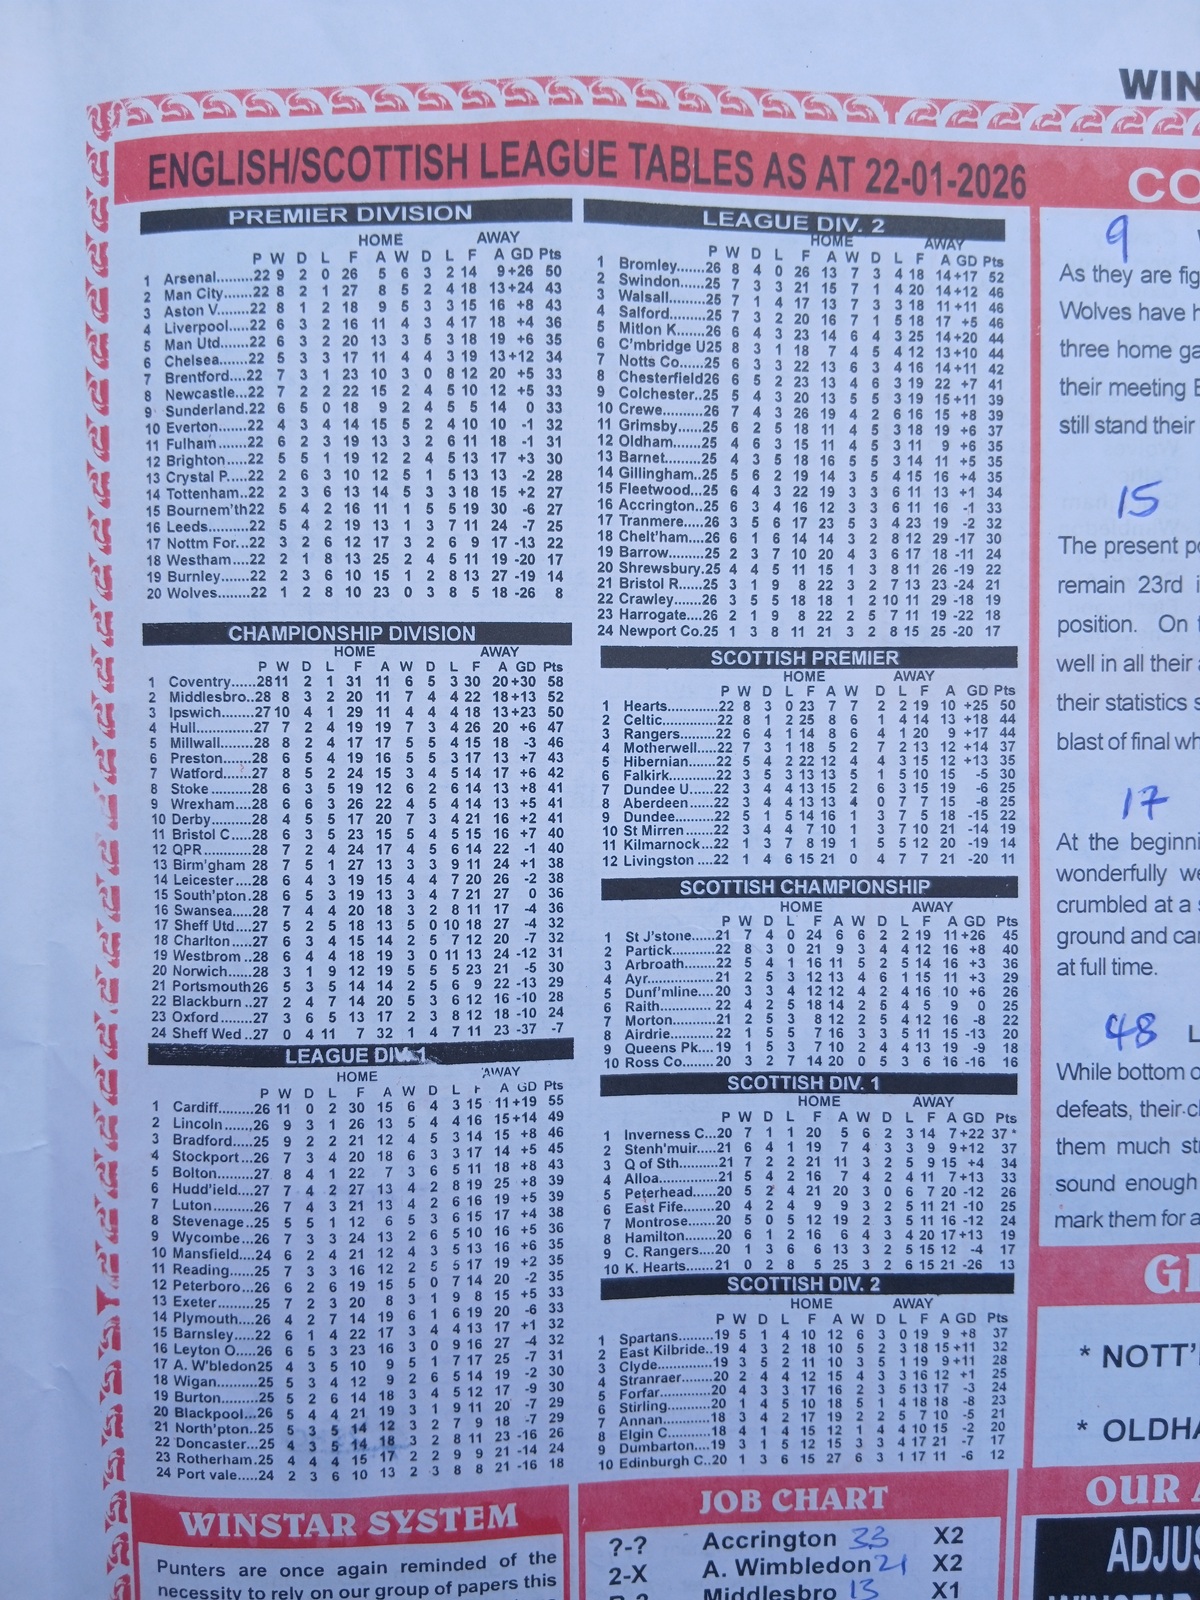 WIN
ENGLISH/SCOTTISH LEAGUE TABLES AS AT 22-01-2026
PREMIER DIVISION
HOME AWAY
P W D L F A W D L F A GD Pts
1 Arsenal.....22 9 2 0 26 5 6 3 2 14 9+26 50
2 Man City.....22 8 2 1 27 8 5 2 4 18 13+24 43
3 Aston V.....22 8 1 2 18 9 5 3 3 15 16 +8 43
4 Liverpool.....22 6 3 2 16 11 4 3 4 17 18 +4 36
5 Man Utd.....22 6 3 2 20 13 3 5 3 18 19 +6 35
6 Chelsea.....22 5 3 3 17 11 4 4 3 19 13+12 34
7 Brentford....22 7 3 1 23 10 3 0 8 12 20 +5 33
8 Newcastle....22 7 2 2 22 15 2 4 5 10 12 +5 33
9 Sunderland.22 6 5 0 18 9 2 4 5 5 14 0 33
10 Everton.....22 4 3 4 14 15 5 2 4 10 10 -1 32
11 Fulham.....22 6 2 3 19 13 3 2 6 11 18 -1 31
12 Brighton.....22 5 5 1 19 12 2 4 5 13 17 +3 30
13 Crystal P.....22 2 6 3 10 12 5 1 5 13 13 -2 28
14 Tottenham..22 2 3 6 13 14 5 3 3 18 15 +2 27
15 Bournem'th22 5 4 2 16 11 1 5 5 19 30 -6 27
16 Leeds........22 5 4 2 19 13 1 3 7 11 24 -7 25
17 Nottm For...22 3 2 6 12 17 3 2 6 9 17 -13 22
18 Westham....22 2 1 8 13 25 2 4 5 11 19 -20 17
19 Burnley......22 2 3 6 10 15 1 2 8 13 27 -19 14
20 Wolves.......22 1 2 8 10 23 0 3 8 5 18 -26 8
CHAMPIONSHIP DIVISION
HOME AWAY
P W D L F A W D L F A GD Pts
1 Coventry.....28 11 2 1 31 11 6 5 3 30 20+30 58
2 Middlesbro..28 8 3 2 20 11 7 4 4 22 18+13 52
3 Ipswich.......27 10 4 1 29 11 4 4 4 18 13+23 50
4 Hull............27 7 2 4 19 19 7 3 4 26 20 +6 47
5 Millwall.......28 8 2 4 17 17 5 5 4 15 18 -3 46
6 Preston.......28 6 5 4 19 16 5 5 3 17 13 +7 43
7 Watford.......27 8 5 2 24 15 3 4 5 14 17 +6 42
8 Stoke.........28 6 3 5 19 12 6 2 6 14 13 +8 41
9 Wrexham....28 6 6 3 26 22 4 5 4 14 13 +5 41
10 Derby........28 4 5 5 17 20 7 3 4 21 16 +2 41
11 Bristol C....28 6 3 5 23 15 5 4 5 15 16 +7 40
12 QPR..........28 7 2 4 24 17 4 5 6 14 22 -1 40
13 Birm'gham 28 7 5 1 27 13 3 3 9 11 24 +1 38
14 Leicester....28 6 4 3 19 15 4 4 7 20 26 -2 38
15 South'pton.28 6 5 3 19 13 3 4 7 21 27 0 36
16 Swansea....28 7 4 4 20 18 3 2 8 11 17 -4 36
17 Sheff Utd...27 5 2 5 18 13 5 0 10 18 27 -4 32
18 Charlton.....27 6 3 4 15 14 2 5 7 12 20 -7 32
19 Westbrom ..28 6 4 4 18 19 3 0 11 13 24 -12 31
20 Norwich.....28 3 1 9 12 19 5 5 5 23 21 -5 30
21 Portsmouth26 5 3 5 14 14 2 5 6 9 22 -13 29
22 Blackburn ..27 2 4 7 14 20 5 3 6 12 16 -10 28
23 Oxford.......27 3 6 5 13 17 2 3 8 12 18 -10 24
24 Sheff Wed ..27 0 4 11 7 32 1 4 7 11 23 -37 -7
LEAGUE DIV. 1
HOME AWAY
P W D L F A W D L F A GD Pts
1 Cardiff.........26 11 0 2 30 15 6 4 3 15 11+19 55
2 Lincoln........26 9 3 1 26 13 5 4 4 16 15+14 49
3 Bradford......25 9 2 2 21 12 4 5 3 14 15 +8 46
4 Stockport....26 7 3 4 20 18 6 3 3 14 17 +5 45
5 Bolton.........27 8 4 1 22 7 3 6 5 11 18 +8 43
6 Hudd'ield....27 7 4 2 27 13 4 2 8 19 25 +8 39
7 Luton..........26 7 4 3 21 13 4 2 6 16 19 +5 39
8 Stevenage...25 5 5 1 12 6 5 3 6 15 17 +4 38
9 Wycombe....26 7 3 3 24 13 2 6 5 10 16 +5 36
10 Mansfield...24 6 2 4 21 12 4 3 5 13 16 +6 35
11 Reading.....25 7 3 3 16 12 2 5 5 17 19 +2 35
12 Peterboro...26 6 2 6 19 15 5 0 7 14 20 -2 35
13 Exeter........25 7 2 3 20 8 3 1 9 8 15 +5 33
14 Plymouth....26 4 2 7 14 19 6 1 6 19 20 -6 33
15 Barnsley.....22 6 1 4 22 17 3 4 4 13 17 +1 32
16 Leyton O....26 6 5 3 23 16 3 0 9 16 27 -4 32
17 A. W'bledon25 4 3 5 10 9 5 1 7 17 25 -7 31
18 Wigan........25 5 3 4 12 9 2 6 5 14 19 -2 30
19 Burton........25 5 2 6 14 18 3 4 5 12 17 -9 30
20 Blackpool...26 5 4 4 21 19 3 1 9 11 20 -7 29
21 North'pton..25 5 3 5 14 12 3 2 7 9 18 -7 29
22 Doncaster...25 4 3 5 14 18 3 2 8 11 23 -16 26
23 Rotherham.25 4 4 4 15 17 2 2 9 9 21 -14 24
24 Port vale.....24 2 3 6 10 13 2 3 8 8 21 -16 18
LEAGUE DIV. 2
HOME AWAY
P W D L F A W D L F A GD Pts
1 Bromley.......26 8 4 0 26 13 7 3 4 18 14+17 52
2 Swindon......25 7 3 3 21 15 7 1 4 20 14+12 46
3 Walsall........25 7 1 4 17 13 7 3 3 18 11+11 46
4 Salford........25 7 3 2 20 16 7 1 5 18 17 +5 46
5 Mitlon K......26 6 4 3 23 14 6 4 3 25 14+20 44
6 C'mbridge U25 8 3 1 18 7 4 5 4 12 13+10 44
7 Notts Co.....25 6 3 3 22 13 6 3 4 16 14+11 42
8 Chesterfield26 6 5 2 23 13 4 6 3 19 22 +7 41
9 Colchester..25 5 4 3 20 13 5 5 3 19 15+11 39
10 Crewe........26 7 4 3 26 19 4 2 6 16 15 +8 39
11 Grimsby.....25 6 2 5 18 11 4 5 3 18 19 +6 37
12 Oldham......25 4 6 3 15 11 4 5 3 11 9 +6 35
13 Barnet........25 4 3 5 18 16 5 5 3 14 11 +5 35
14 Gillingham..25 5 6 2 19 14 3 5 4 15 16 +4 35
15 Fleetwood...25 6 4 3 22 19 3 3 6 11 13 +1 34
16 Accrington..25 6 3 4 16 12 3 3 6 11 16 -1 33
17 Tranmere....26 3 5 6 17 23 5 3 4 23 19 -2 32
18 Chelt'ham...26 6 1 6 14 14 3 2 8 12 29 -17 30
19 Barrow.......25 2 3 7 10 20 4 3 6 17 18 -11 24
20 Shrewsbury.25 4 4 5 11 15 1 3 8 11 26 -19 22
21 Bristol R.....25 3 1 9 8 22 3 2 7 13 23 -24 21
22 Crawley......26 3 5 5 18 18 1 2 10 11 29 -18 19
23 Harrogate...26 2 1 9 8 22 2 5 7 11 19 -22 18
24 Newport Co.25 1 3 8 11 21 3 2 8 15 25 -20 17
SCOTTISH PREMIER
HOME AWAY
P W D L F A W D L F A GD Pts
1 Hearts.........22 8 3 0 23 7 7 2 2 19 10 +25 50
2 Celtic..........22 8 1 2 25 8 6 1 4 14 13 +18 44
3 Rangers......22 6 4 1 14 8 6 4 1 20 9 +17 44
4 Motherwell..22 7 3 1 18 5 2 7 2 13 12 +14 37
5 Hibernian....22 5 4 2 22 12 4 4 3 15 12 +13 35
6 Falkirk........22 3 5 3 13 13 5 1 5 10 15 -5 30
7 Dundee U....22 3 4 4 13 15 2 6 3 15 19 -6 25
8 Aberdeen....22 3 4 4 13 13 4 0 7 7 15 -8 25
9 Dundee.......22 5 1 5 14 16 1 3 7 5 18 -15 22
10 St Mirren....22 3 4 4 7 10 1 3 7 10 21 -14 19
11 Kilmarnock..22 1 3 7 8 19 1 5 5 12 20 -19 14
12 Livingston ..22 1 4 6 15 21 0 4 7 7 21 -20 11
SCOTTISH CHAMPIONSHIP
HOME AWAY
P W D L F A W D L F A GD Pts
1 St J'stone.....21 7 4 0 24 6 6 2 2 19 11+26 45
2 Partick........22 8 3 0 21 9 3 4 4 12 16 +8 40
3 Arbroath......22 5 4 1 16 11 5 2 5 14 16 +3 36
4 Ayr.............21 2 5 3 12 13 4 6 1 15 11 +3 29
5 Dunf'mline..20 3 3 4 12 12 4 2 4 16 10 +6 26
6 Raith..........22 4 2 5 18 14 2 5 4 5 9 0 25
7 Morton........21 2 5 3 8 12 2 5 4 12 16 -8 22
8 Airdrie........22 1 5 5 7 16 3 3 5 11 15 -13 20
9 Queens Pk...19 1 5 3 7 10 2 4 4 13 19 -9 18
10 Ross Co.....20 3 2 7 14 20 0 5 3 6 16 -16 16
SCOTTISH DIV. 1
HOME AWAY
P W D L F A W D L F A GD Pts
1 Inverness C...20 7 1 1 20 5 6 2 3 14 7+22 37*
2 Stenh'muir....21 6 4 1 19 7 4 3 3 9 9+12 37
3 Q of Sth.......21 7 2 2 21 11 3 2 5 9 15 +4 34
4 Alloa...........21 5 4 2 16 7 4 2 4 11 7+13 33
5 Peterhead.....20 5 2 4 21 20 3 0 6 7 20 -12 26
6 East Fife......20 4 2 4 9 9 3 2 5 11 21 -10 25
7 Montrose......20 5 0 5 12 19 2 3 5 11 16 -12 24
8 Hamilton......20 6 1 2 16 6 4 3 4 20 17+13 19
9 C. Rangers...20 1 3 6 6 13 3 2 5 15 12 -4 17
10 K. Hearts.....21 0 2 8 5 25 3 2 6 15 21 -26 13
SCOTTISH DIV. 2
HOME AWAY
P W D L F A W D L F A GD Pts
1 Spartans.........19 5 1 4 10 12 6 3 0 19 9 +8 37
2 East Kilbride..19 4 3 2 18 10 5 2 3 18 15+11 32
3 Clyde.............19 3 5 2 11 10 3 5 1 19 9+11 28
4 Stranraer.......20 2 4 4 12 15 4 3 3 16 12 +1 25
5 Forfar............20 4 3 3 17 16 2 3 5 13 17 -3 24
6 Stirling..........20 1 4 5 10 18 5 1 4 18 18 -8 23
7 Annan...........18 3 4 2 17 19 2 2 5 7 10 -5 21
8 Elgin C..........18 4 1 4 15 12 1 4 4 10 15 -2 20
9 Dumbarton....19 3 1 5 12 15 3 3 4 17 21 -7 17
10 Edinburgh C..20 1 3 6 15 27 6 3 1 17 11 -6 12
WINSTAR SYSTEM
Punters are once again reminded of the
necessity to rely on our group of papers this
JOB CHART
?-? Accrington 33 X2
2-X A. Wimbledon 21 X2
Middlesbro 13 X1
CO
9
As they are fig
Wolves have h
three home ga
their meeting E
still stand their
15
The present po
remain 23rd i
position. On t
well in all their a
their statistics s
blast of final wh
17
At the beginni
wonderfully we
crumbled at a s
ground and car
at full time.
48 L
While bottom o
defeats, their cl
them much str
sound enough
mark them for a
* NOTT'
* OLDHA
OUR A
ADJUS